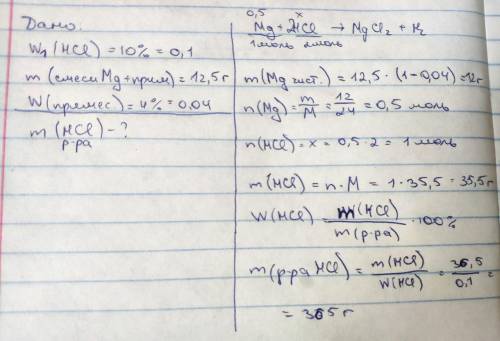 Дано:
W₁(HCl) = 10% = 0,1
m(смеси Mg+прим) = 12,5 г
W(примес) = 4% = 0,04
m(HCl) - ?
р-ра
0,5 x
Mg + 2HCl → MgCl₂ + H₂
1моль 2моль
m(Mg чист.) = 12,5 · (1-0,04) = 12г
n(Mg) = m/M = 12/24 = 0,5 моль
n(HCl) = x = 0,5 · 2 = 1 моль
m(HCl) = n · M = 1 · 35,5 = 35,5 г
W(HCl) = m(HCl)/m(р-ра) · 100%
m(р-ра HCl) = m(HCl)/W(HCl) = 36,5/0,1 =
= 365 г